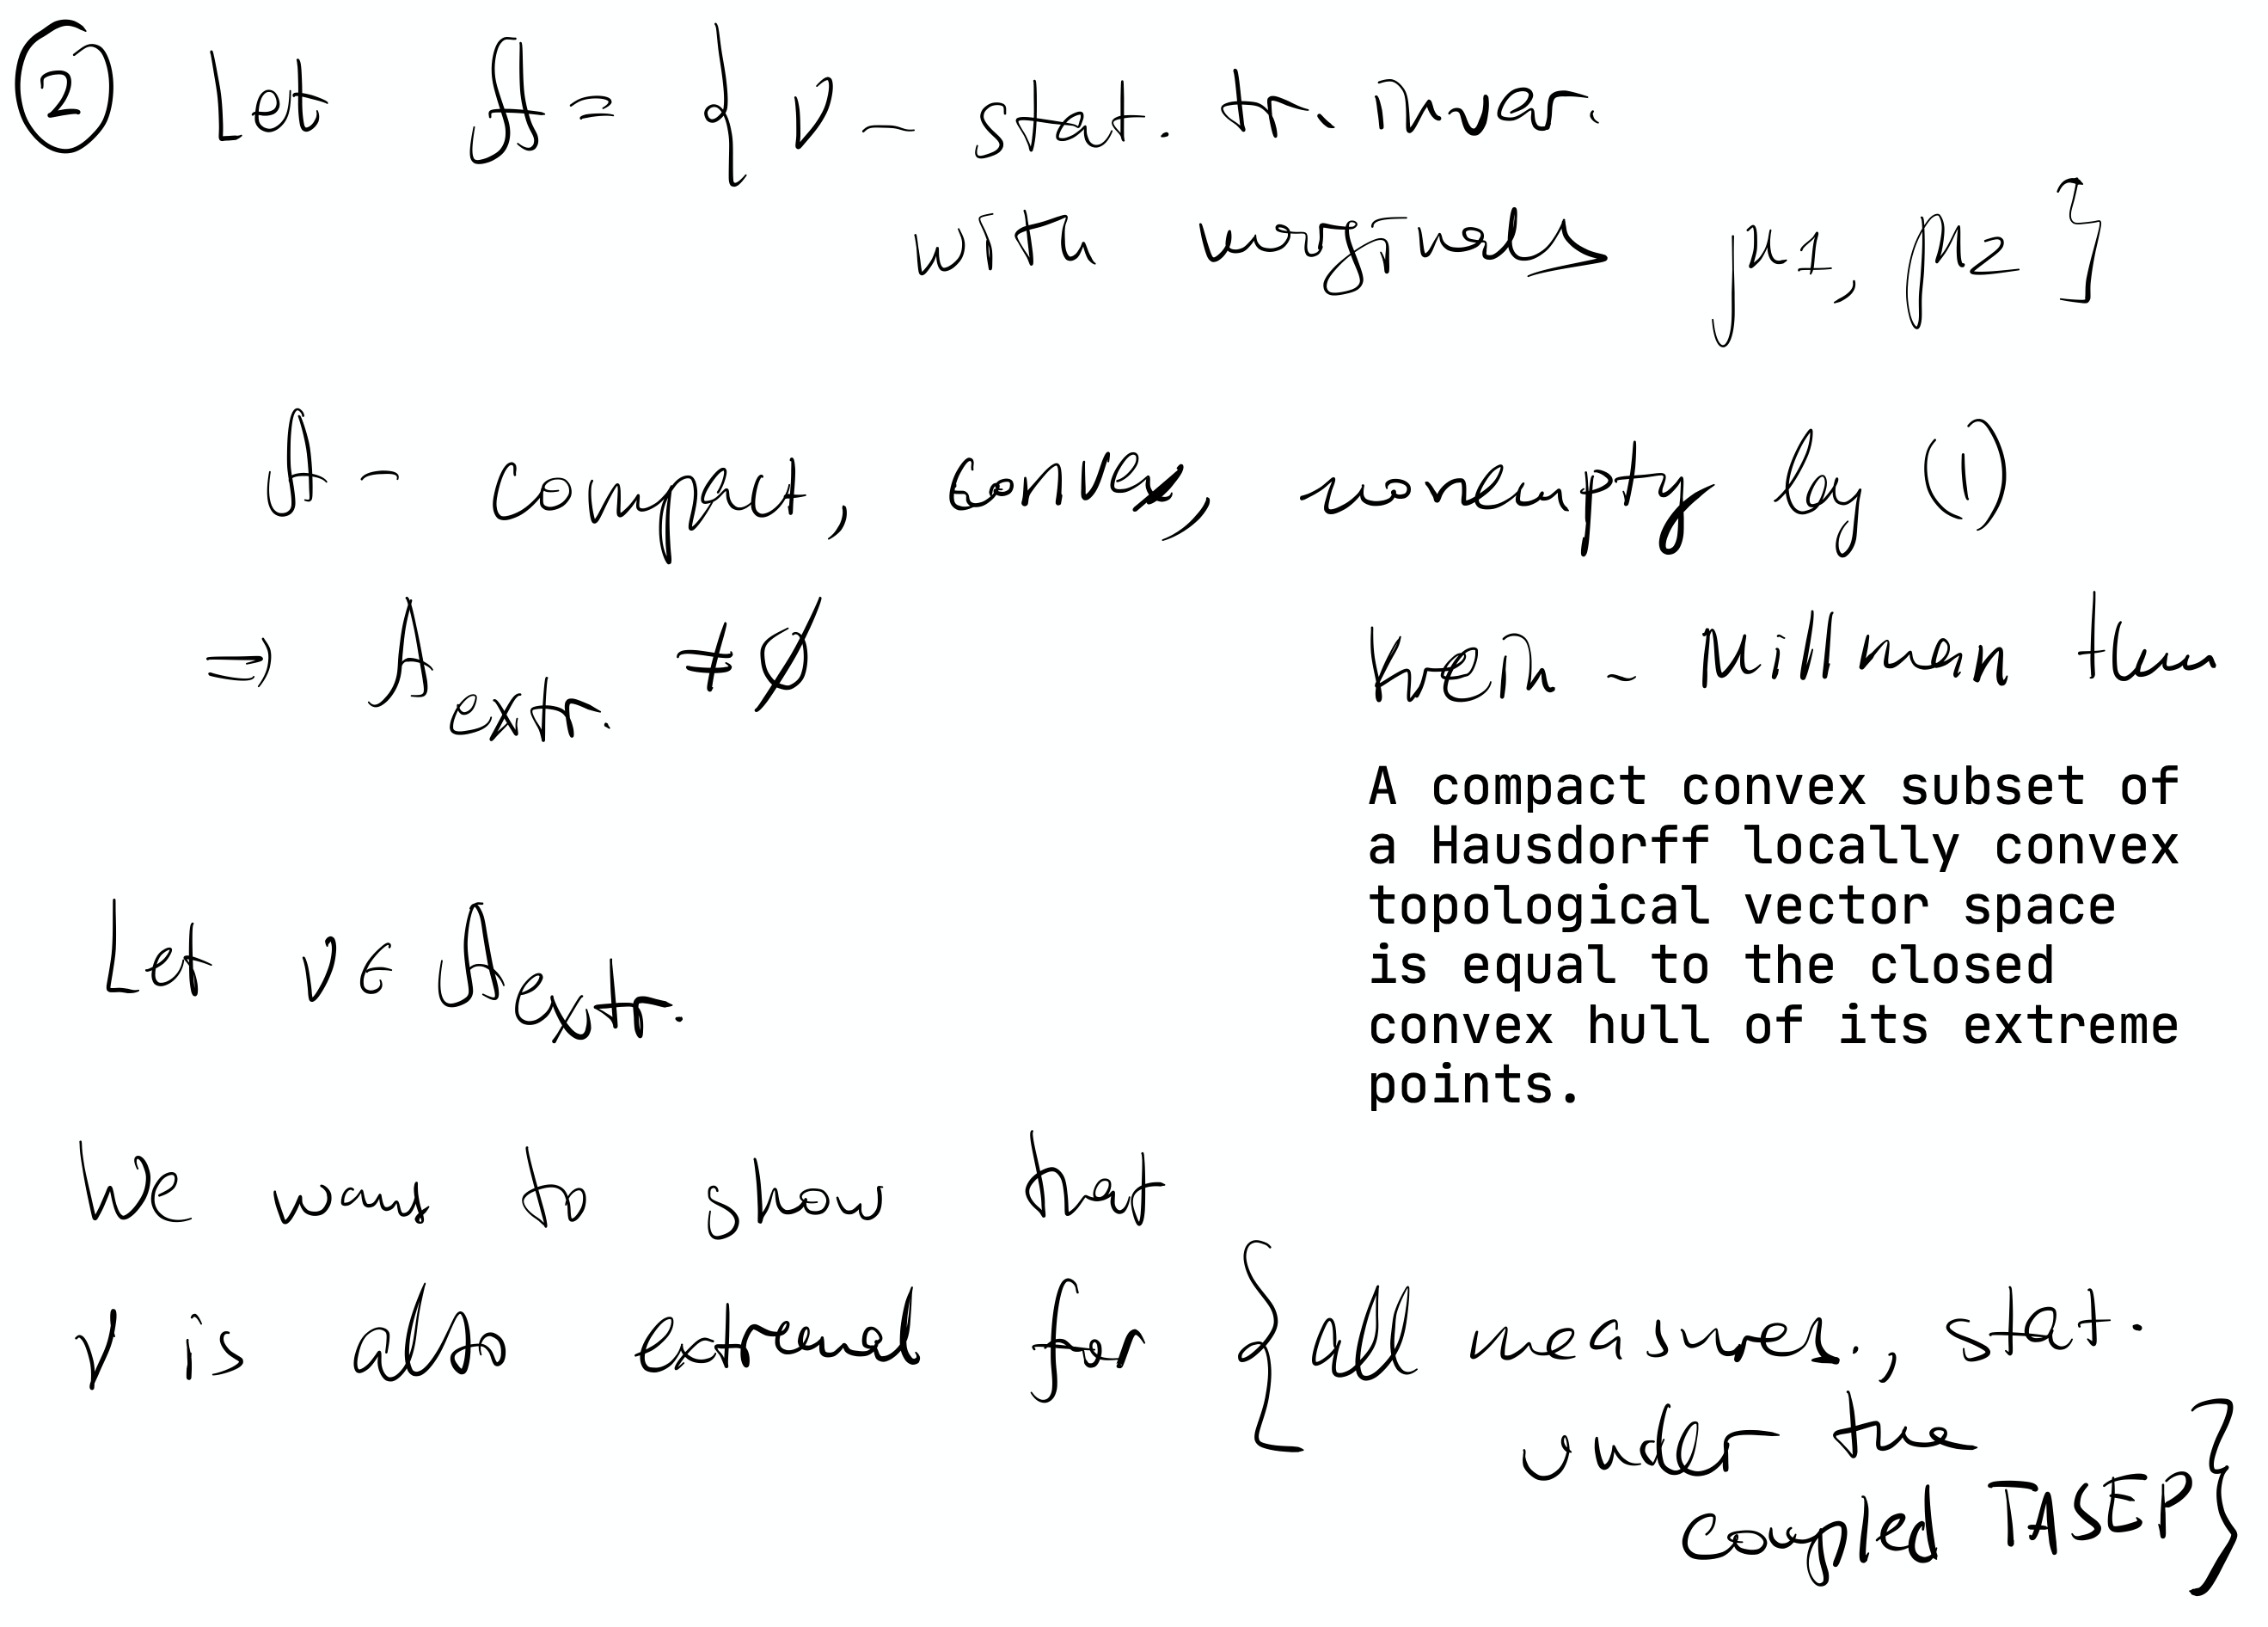 ② Let A = { ν – stat. tr. invar.
with marginals μ1, μ2 }
A – compact, convex, nonempty by (1)
⇒ A extr. ≠ ∅
Krein – Millman thm
A compact convex subset of
a Hausdorff locally convex
topological vector space
is equal to the closed
convex hull of its extreme
points.
Let ν ∈ A extr.
We want to show that
ν is also extremal for { all measures, stat.
under the
coupled TASEP }